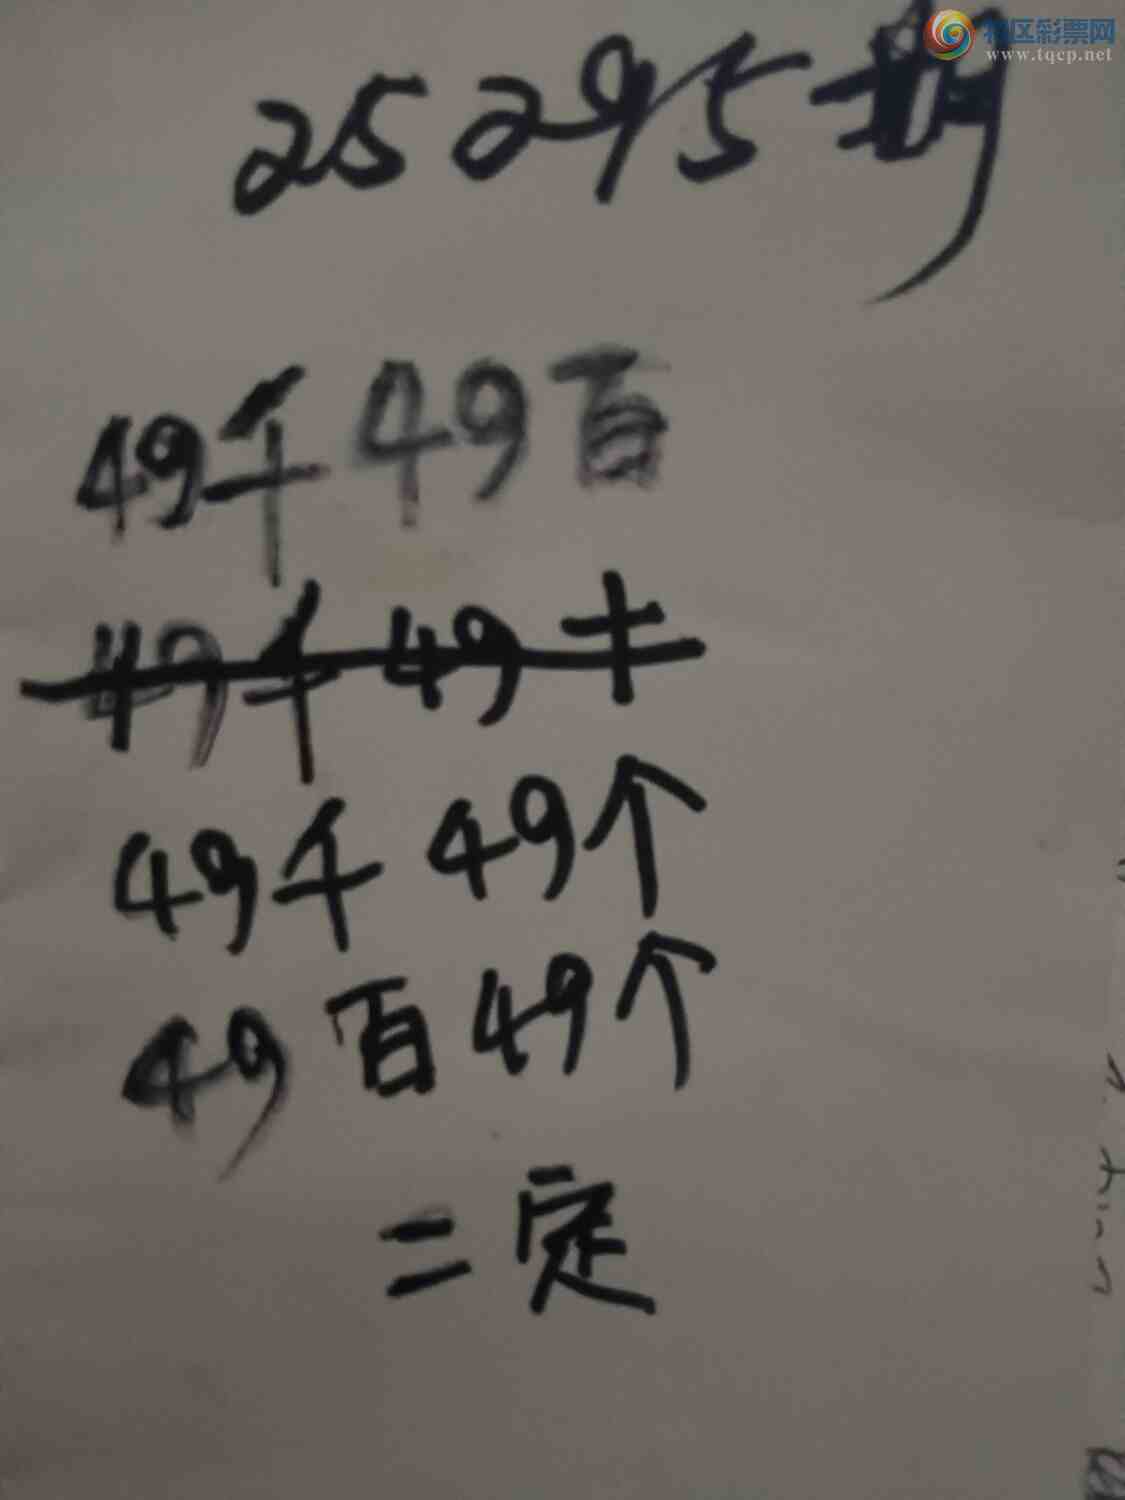 特区彩票网
www.tqcp.net
25295期
49千49百
49千49十
49千49个
49百49个
二定